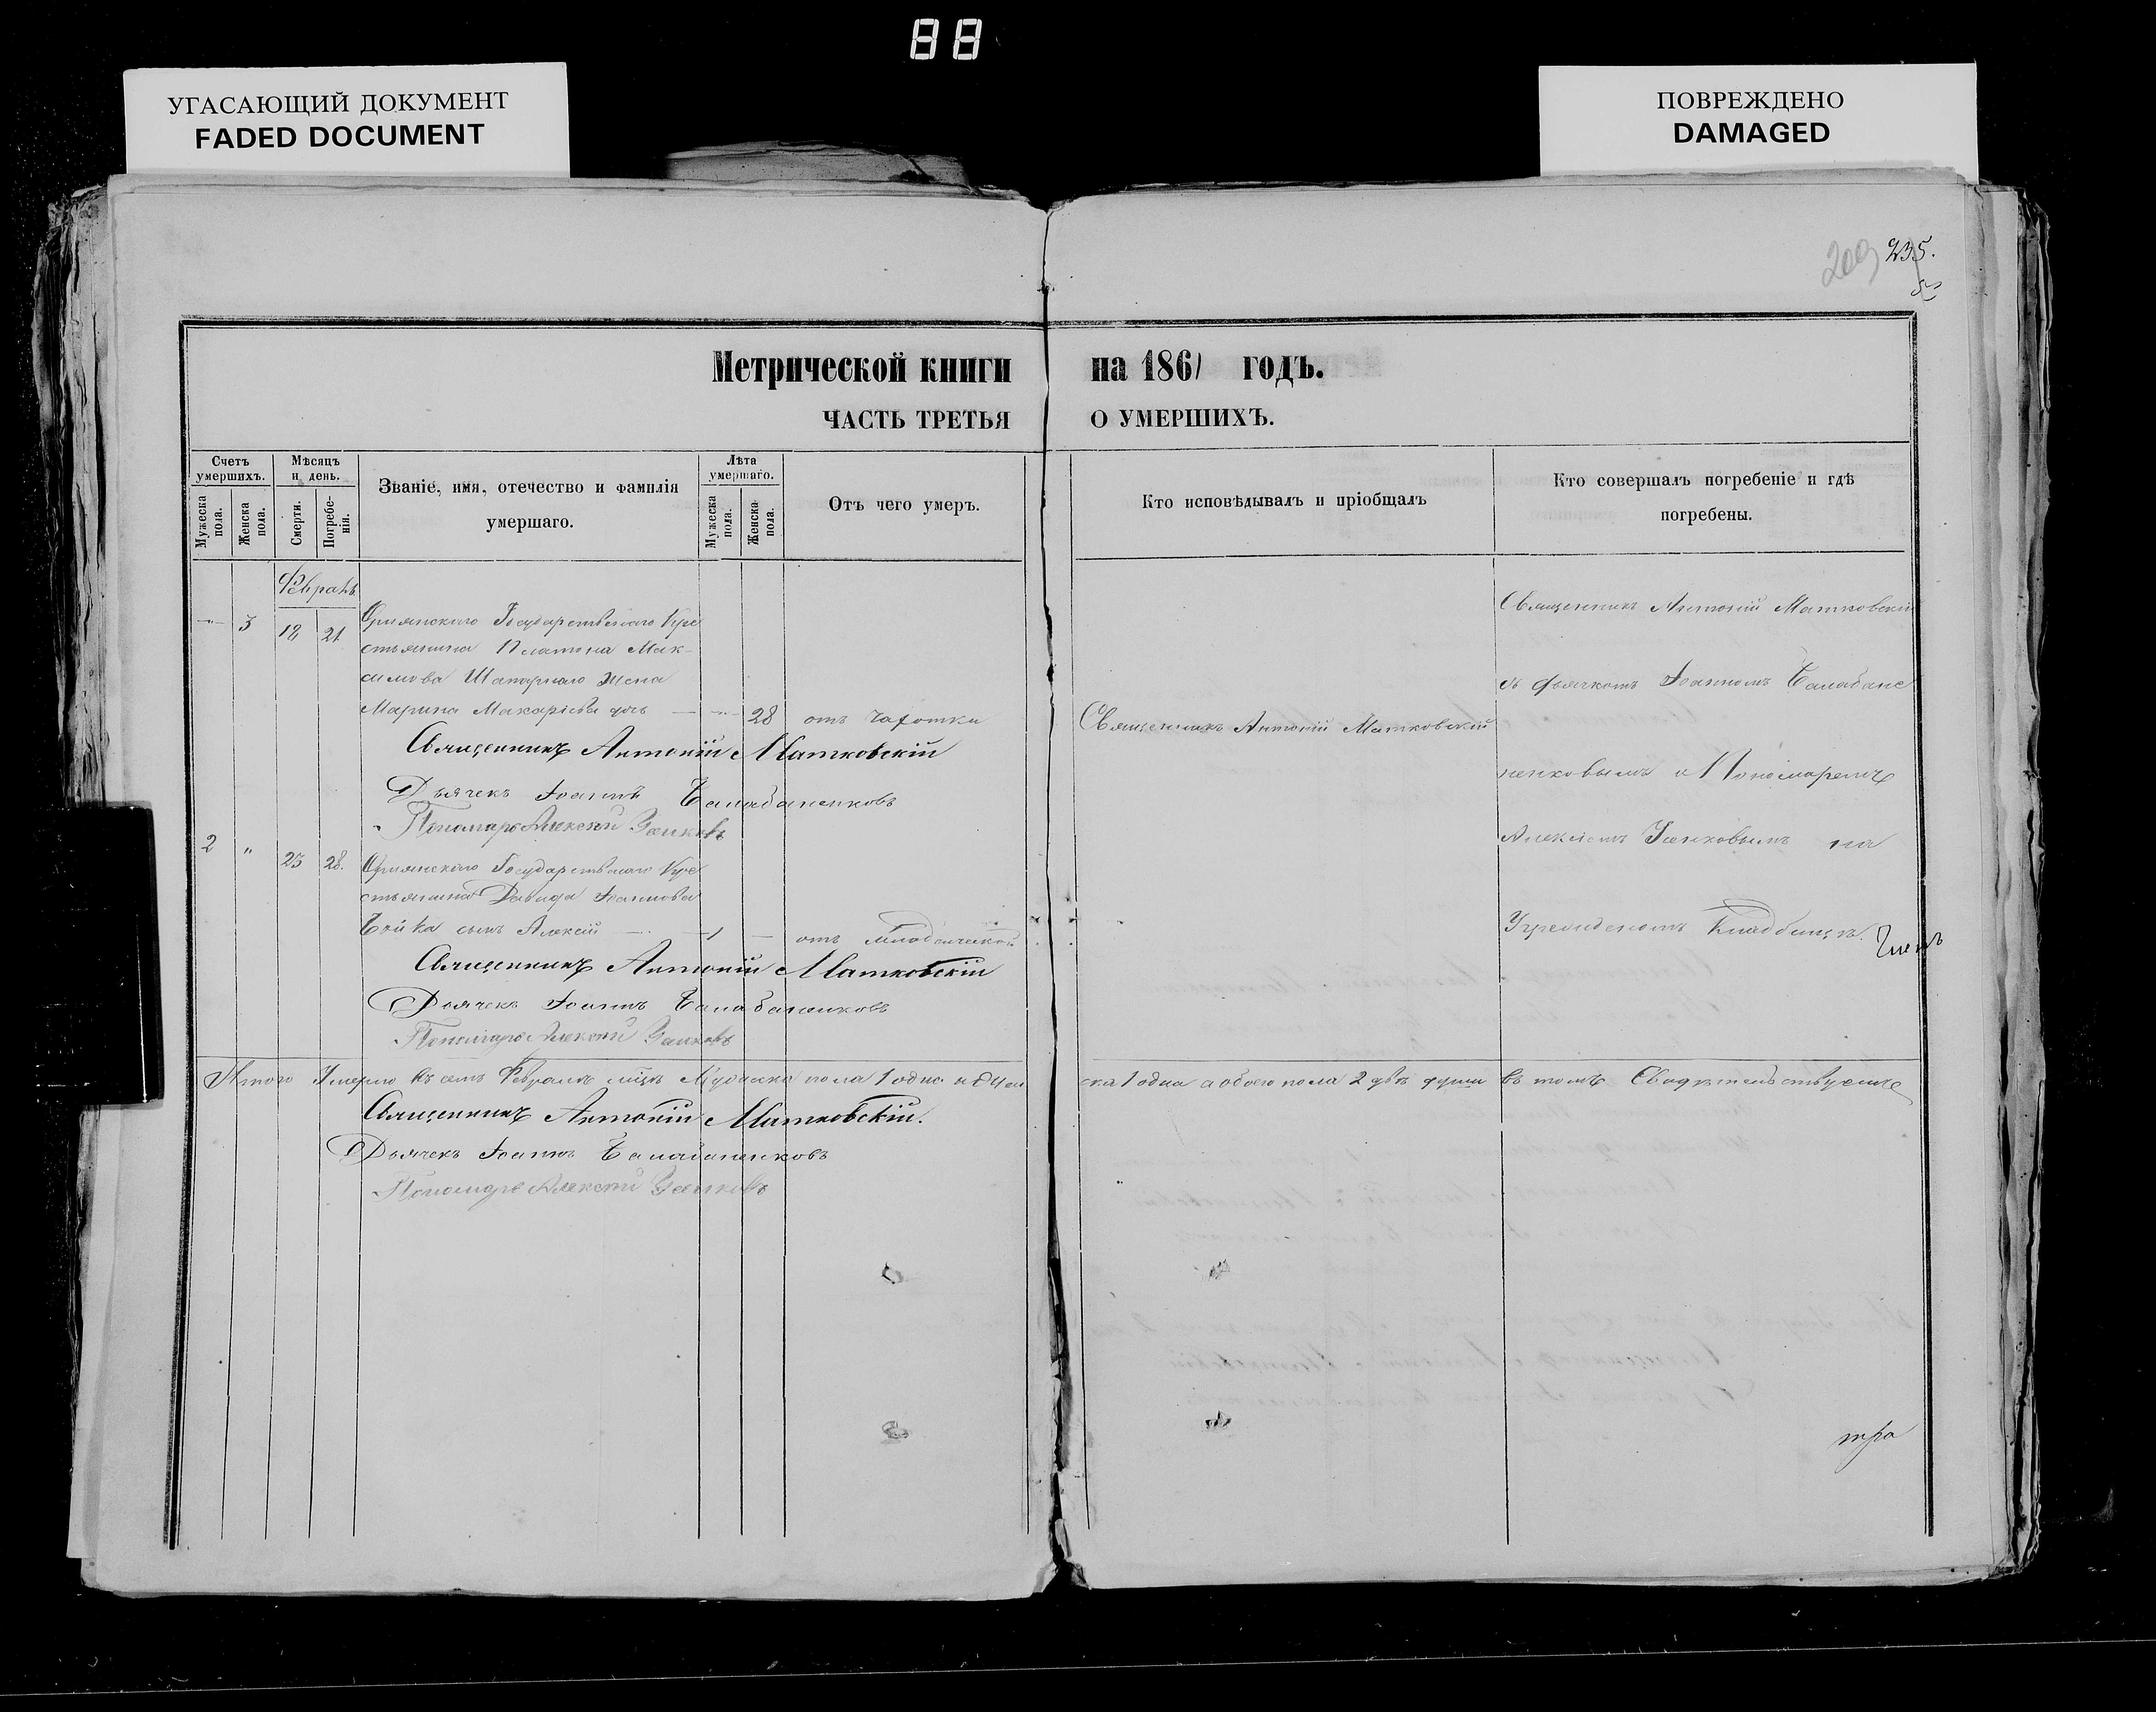 88
УГАСАЮЩИЙ ДОКУМЕНТ
FADED DOCUMENT
ПОВРЕЖДЕНО
DAMAGED
209 235.
Метрической книги на 1861 годъ.
ЧАСТЬ ТРЕТЬЯ О УМЕРШИХЪ.
Счетъ умершихъ.
Мужеска пола.
Женска пола.
Мѣсяцъ и день.
Смерти.
Погребенія.
Званіе, имя, отечество и фамилія
умершаго.
Лѣта умершаго.
Мужеска пола.
Женска пола.
Отъ чего умеръ.
Кто исповѣдывалъ и пріобщалъ
Кто совершалъ погребеніе и гдѣ
погребены.
Февраль
3 18 21 Государственаго Кре
стьянина Платона Мак-
симова Шапорнаго жена
Марина Макаріева дочь 28 отъ чахотки
Священникъ Антоній Матковскій
Священникъ Антоній Матковскій
Дьячекъ Іоаннъ Балабаненковъ
Пономарь Алексій
Священникъ Антоній Матковскій
съ дьячкомъ Іоанномъ Балабане
ненковымъ и Пономаремъ
Алексіемъ на
Учрежденомъ Кладбищѣ.
2 " 25 28. Государственаго Кре
стьянина Давида Іоаннова
Бойка сынъ Алексій 1 отъ младенческой
Священникъ Антоній Матковскій
Дьячекъ Іоаннъ Балабаненковъ
Пономарь Алексій
Итого Умерло въ семъ Февралѣ мцѣ Мужеска пола 1 одна и Жен
ска 1 одна а обоего пола 2 двѣ души въ томъ Свидѣтельствуемъ
Священникъ Антоній Матковскій.
Дьячекъ Іоаннъ Балабаненковъ
Пономарь Алексій